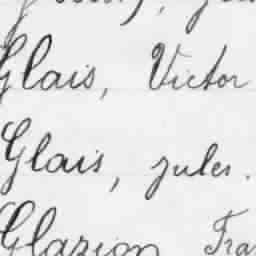 Glais, Victor
Glais, Jules.
Glazion